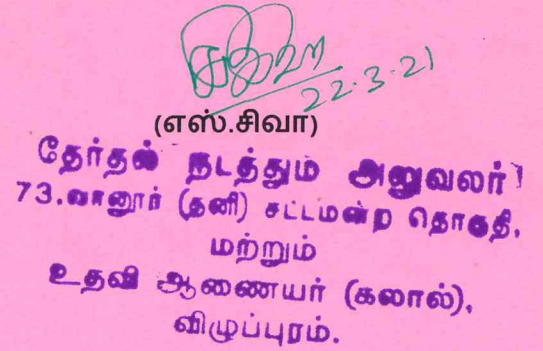 22.3.21
(எஸ்.சிவா)
தேர்தல் நடத்தும் அலுவலர்
73.வானூர் (தனி) சட்டமன்ற தொகுதி,
மற்றும்
உதவி ஆணையர் (கலால்),
விழுப்புரம்.